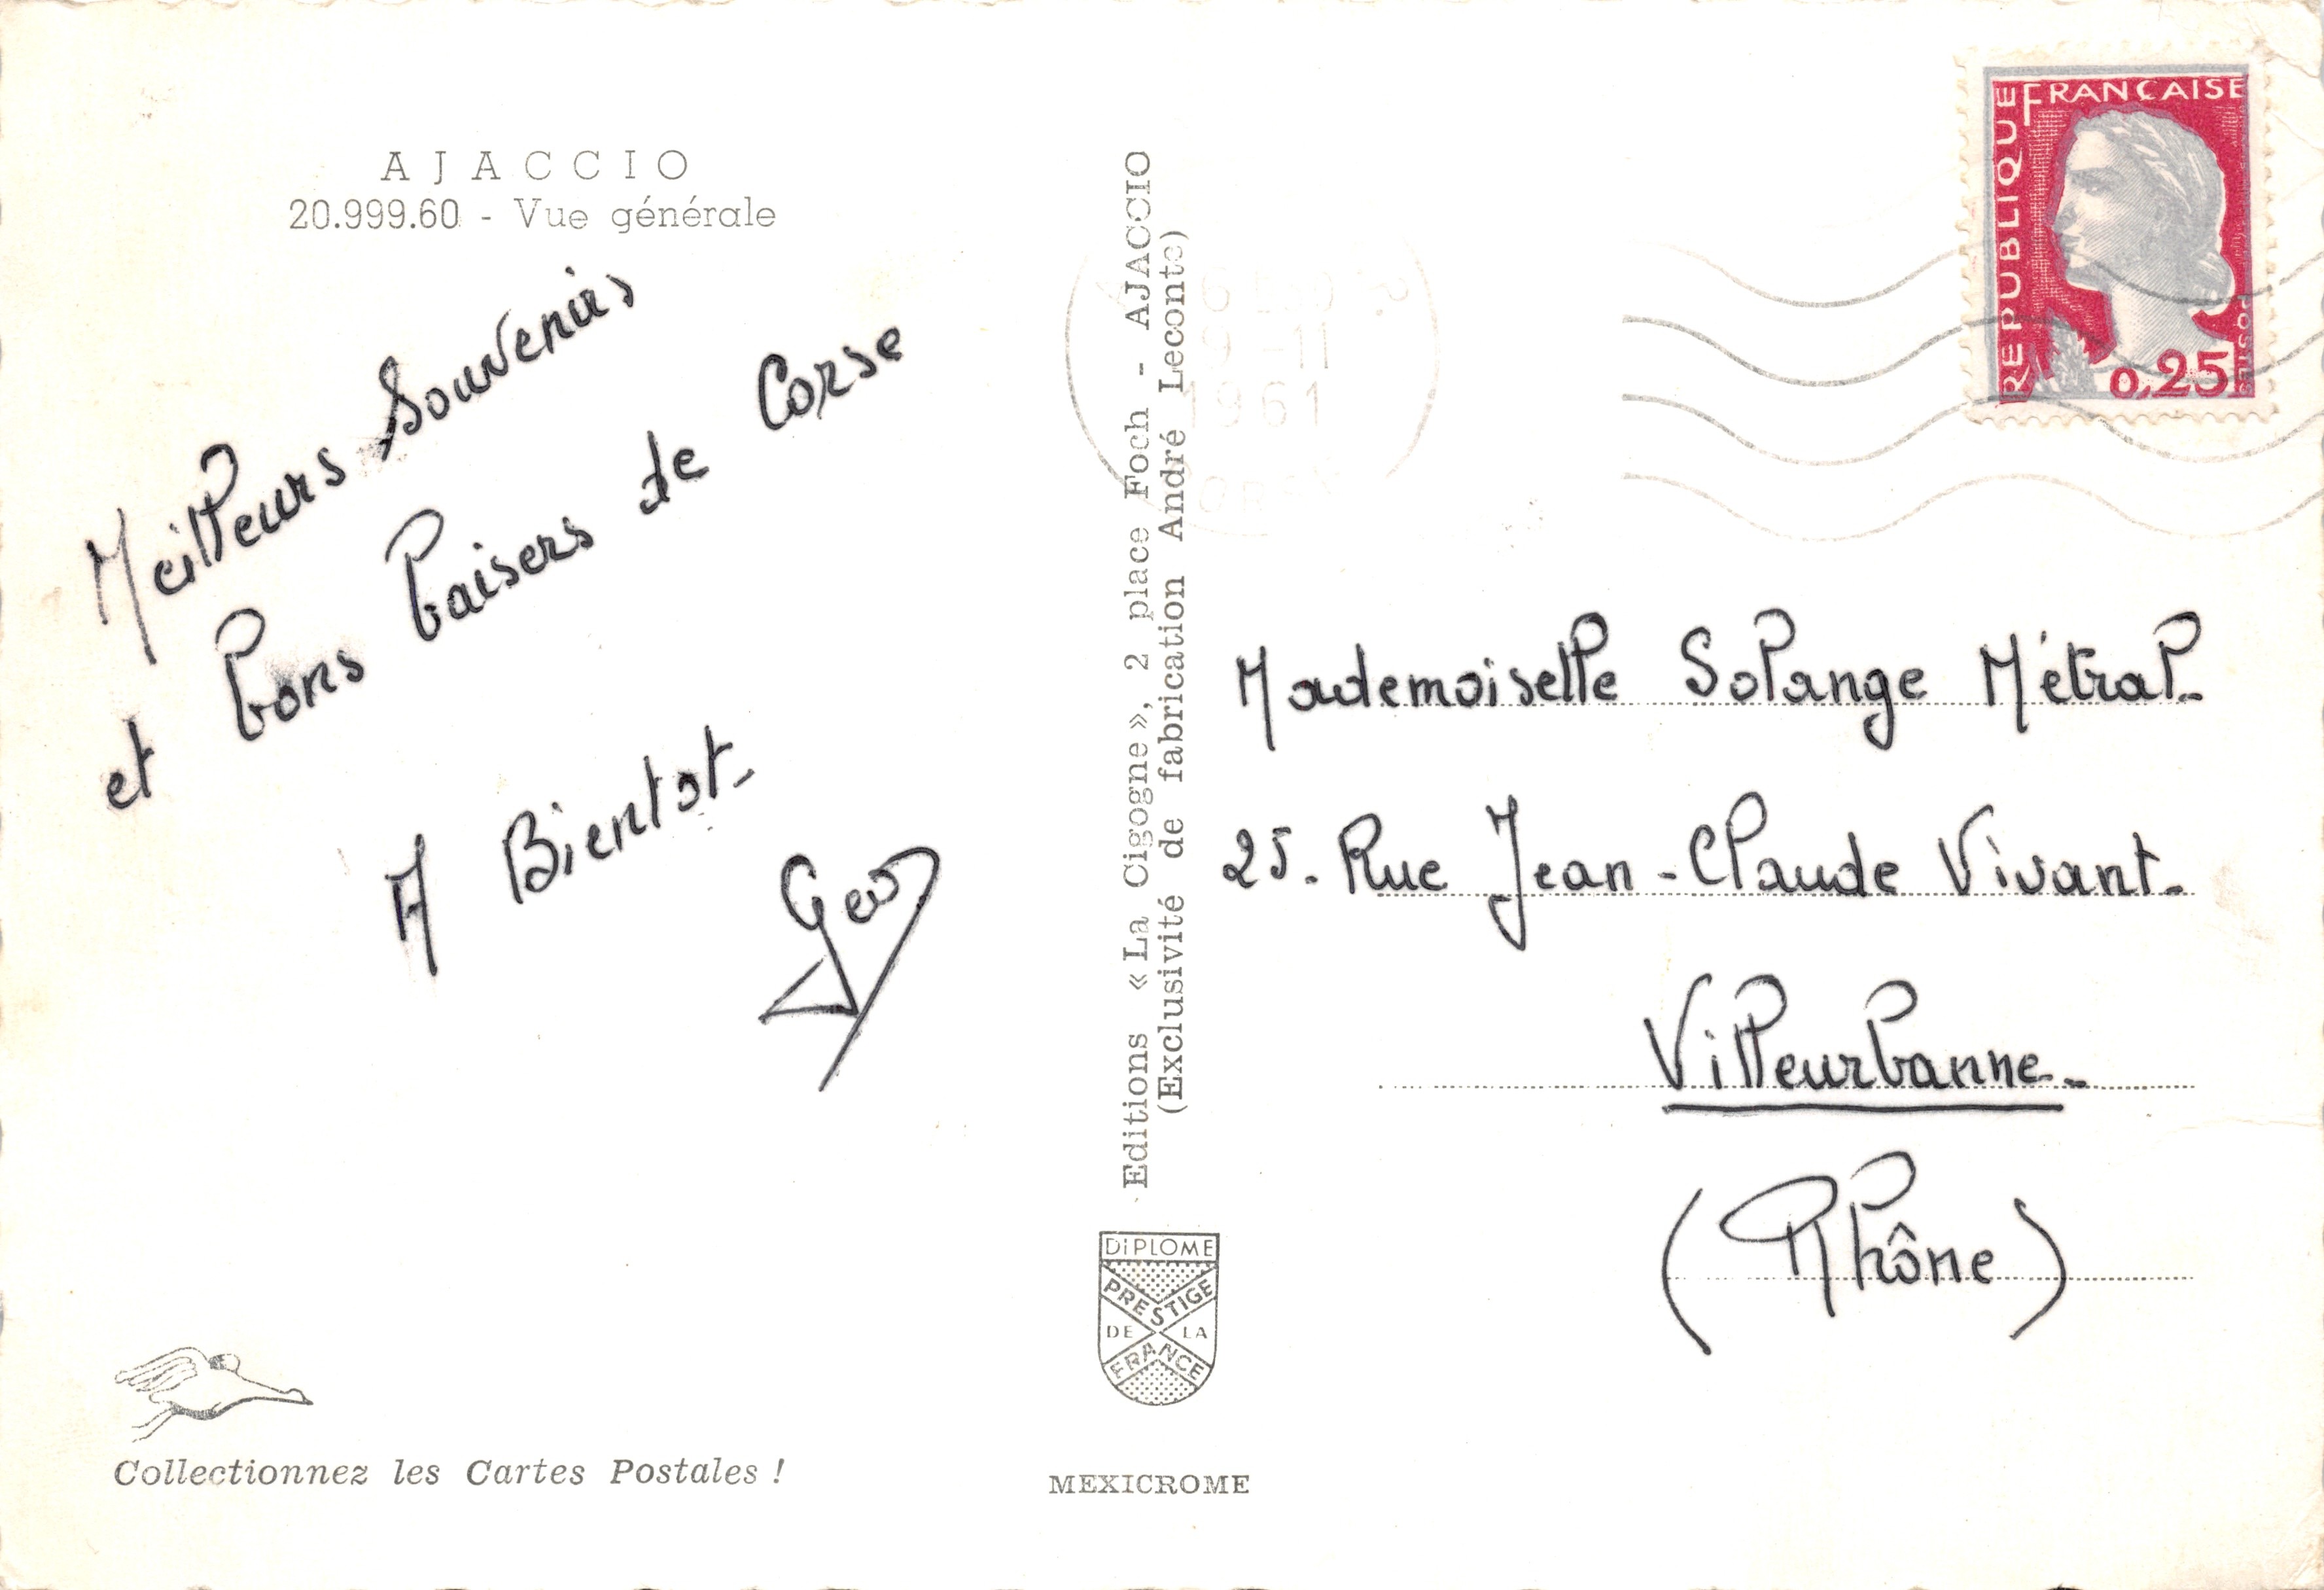 AJACCIO
20.999.60 - Vue générale
Meilleurs Souvenirs
et bons baisers de Corse
A Bientot-
Geo
Collectionnez les Cartes Postales !
Editions « La Cigogne », 2 place Foch - AJACCIO
(Exclusivité de fabrication André Leconte)
DIPLOME
PRESTIGE
DE LA
FRANCE
MEXICROME
9 -11
1961
REPUBLIQUE FRANÇAISE
POSTES
0,25
Mademoiselle Solange Métral-
25. Rue Jean-Claude Vivant-
Villeurbanne-
(Rhône)